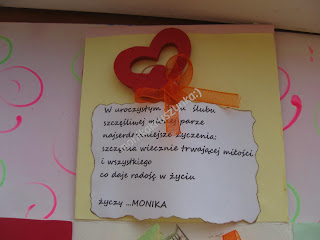 W uroczystym u ślubu
szczęśliwej parze
najserdeczniejsze życzenia:
szczęścia wiecznie trwającej miłości
i wszystkiego
co daje radość w życiu
życzy ...MONIKA